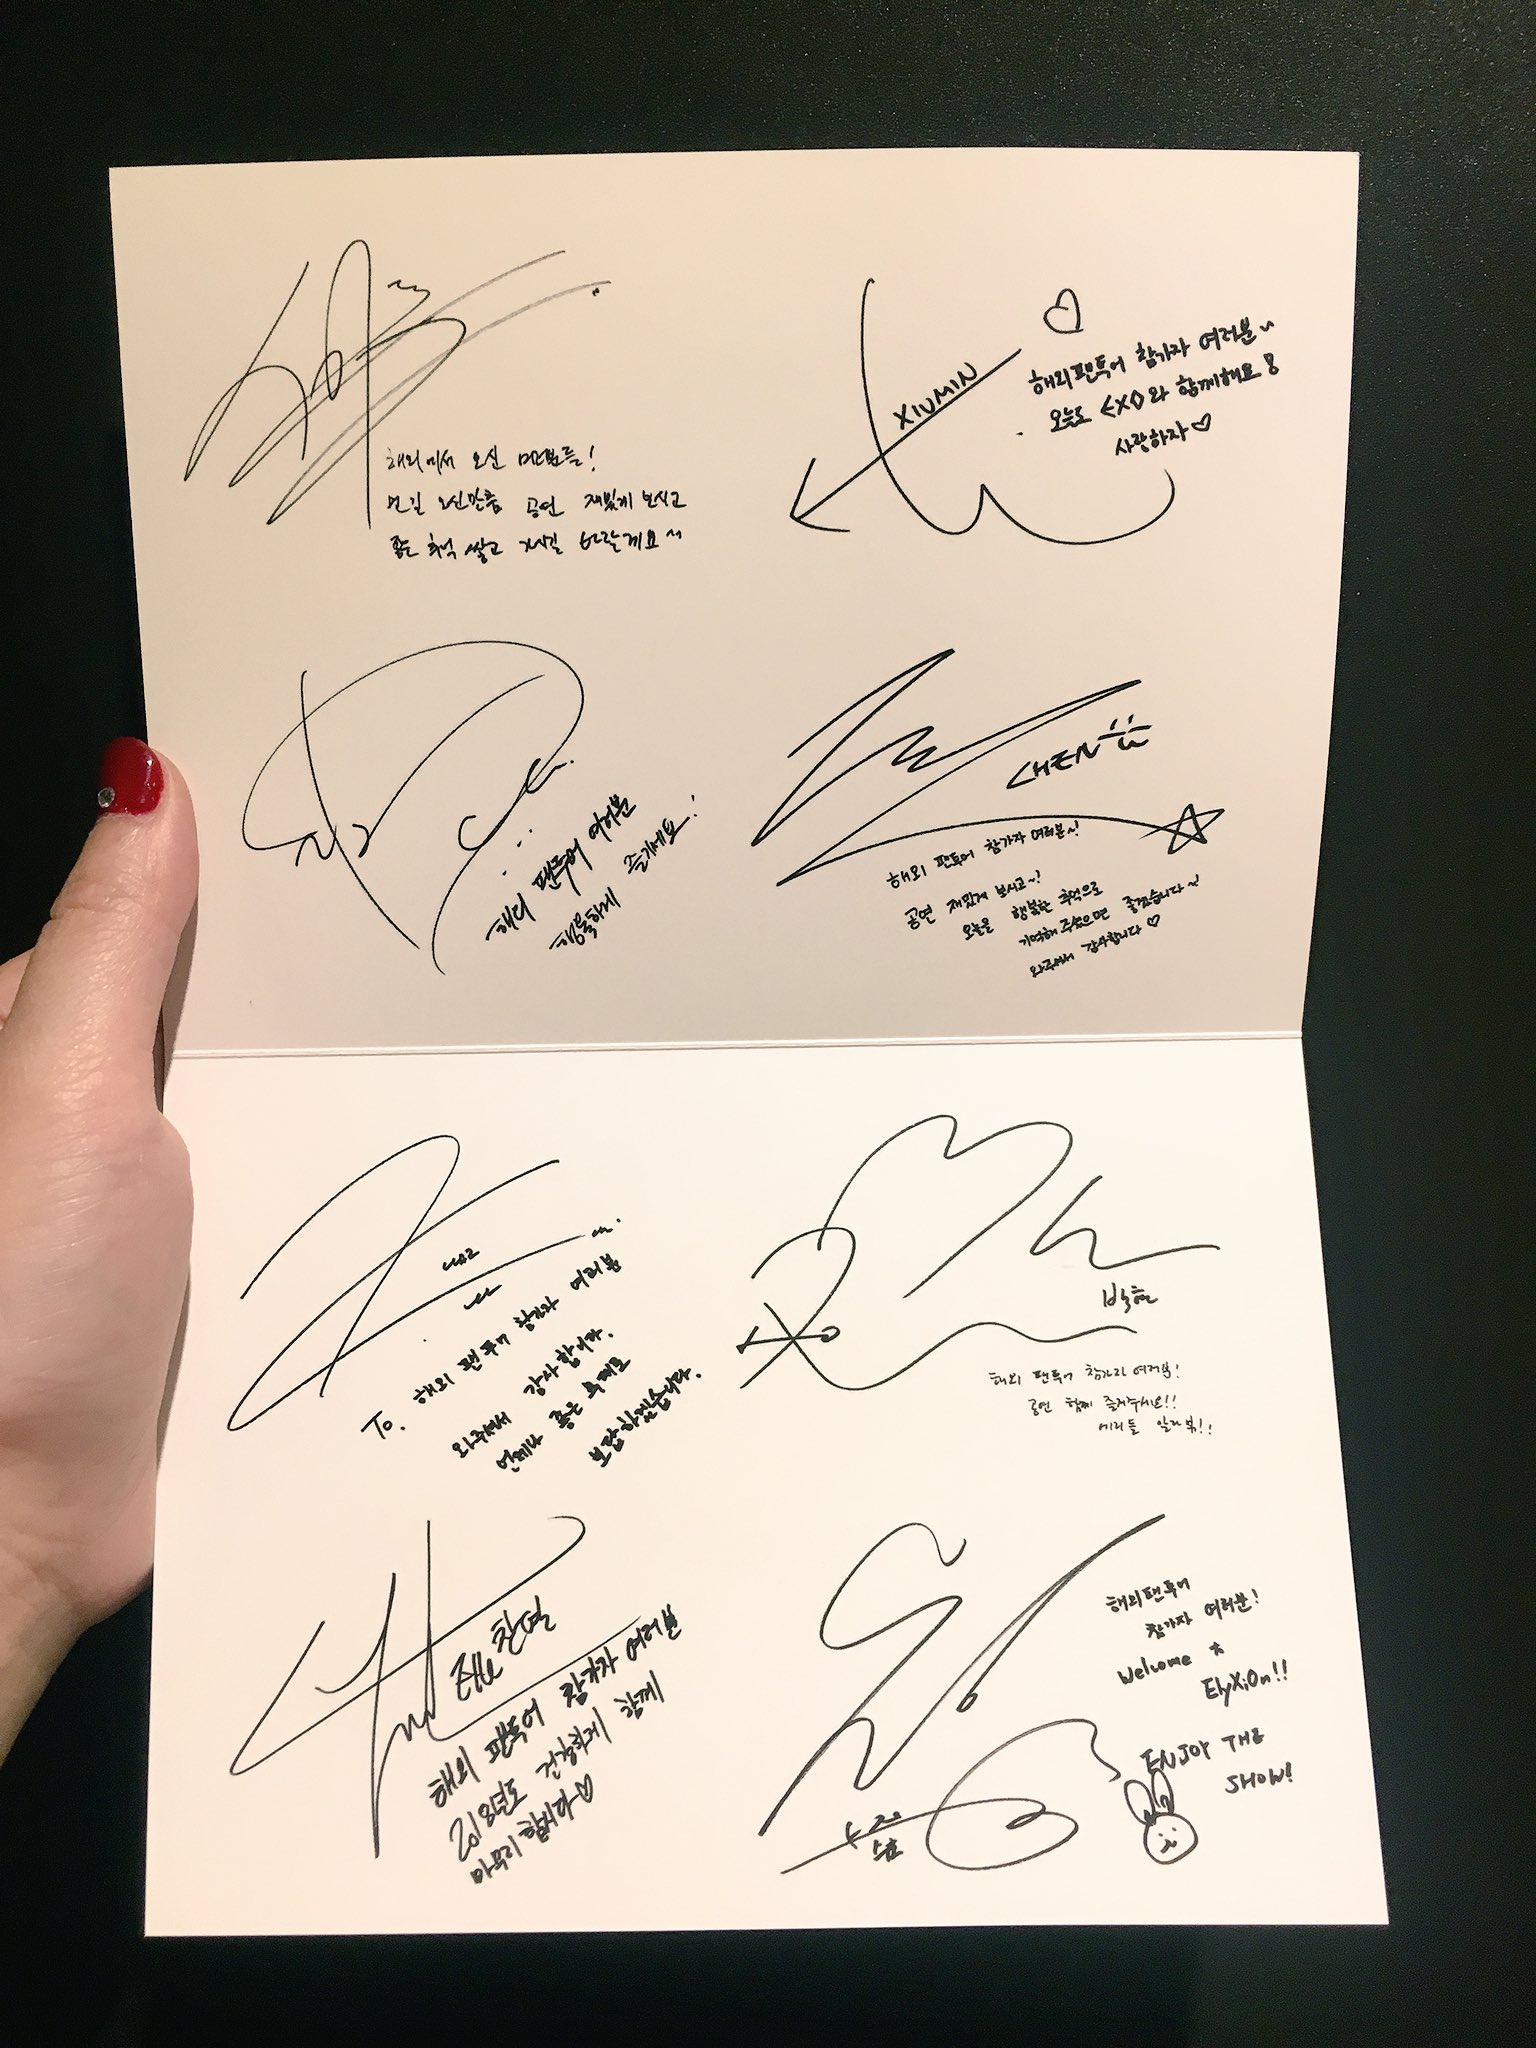 해외에서 오신 팬분들!
먼길 오신만큼 공연 재밌게 보시고
좋은 추억 쌓고 가시길 바랄게요~
XIUMIN
해외팬투어 참가자 여러분~
오늘도 EXO와 함께해요!
사랑하자♡
해외 팬투어 여러분
행복하게 즐기세요!
CHEN
해외 팬투어 참가자 여러분~!
공연 재밌게 보시고~!
오늘을 행복한 추억으로
기억해 주셨으면 좋겠습니다~!
와주셔서 감사합니다 ♡
To. 해외 팬투어 참가자 여러분
와주셔서 감사합니다.
언제나 좋은 무대로
보답하겠습니다.
백현
해외 팬투어 참가자 여러분!
공연 함께 즐겨주시요!!
에리들 알라뷰!!
찬열
해외 팬투어 참가자 여러분
2018년도 건강하게 함께
마무리 합시다♡
수호
해외팬투어
참가자 여러분!
Welcome to
ElyXiOn!!
ENJOY THE
SHOW!